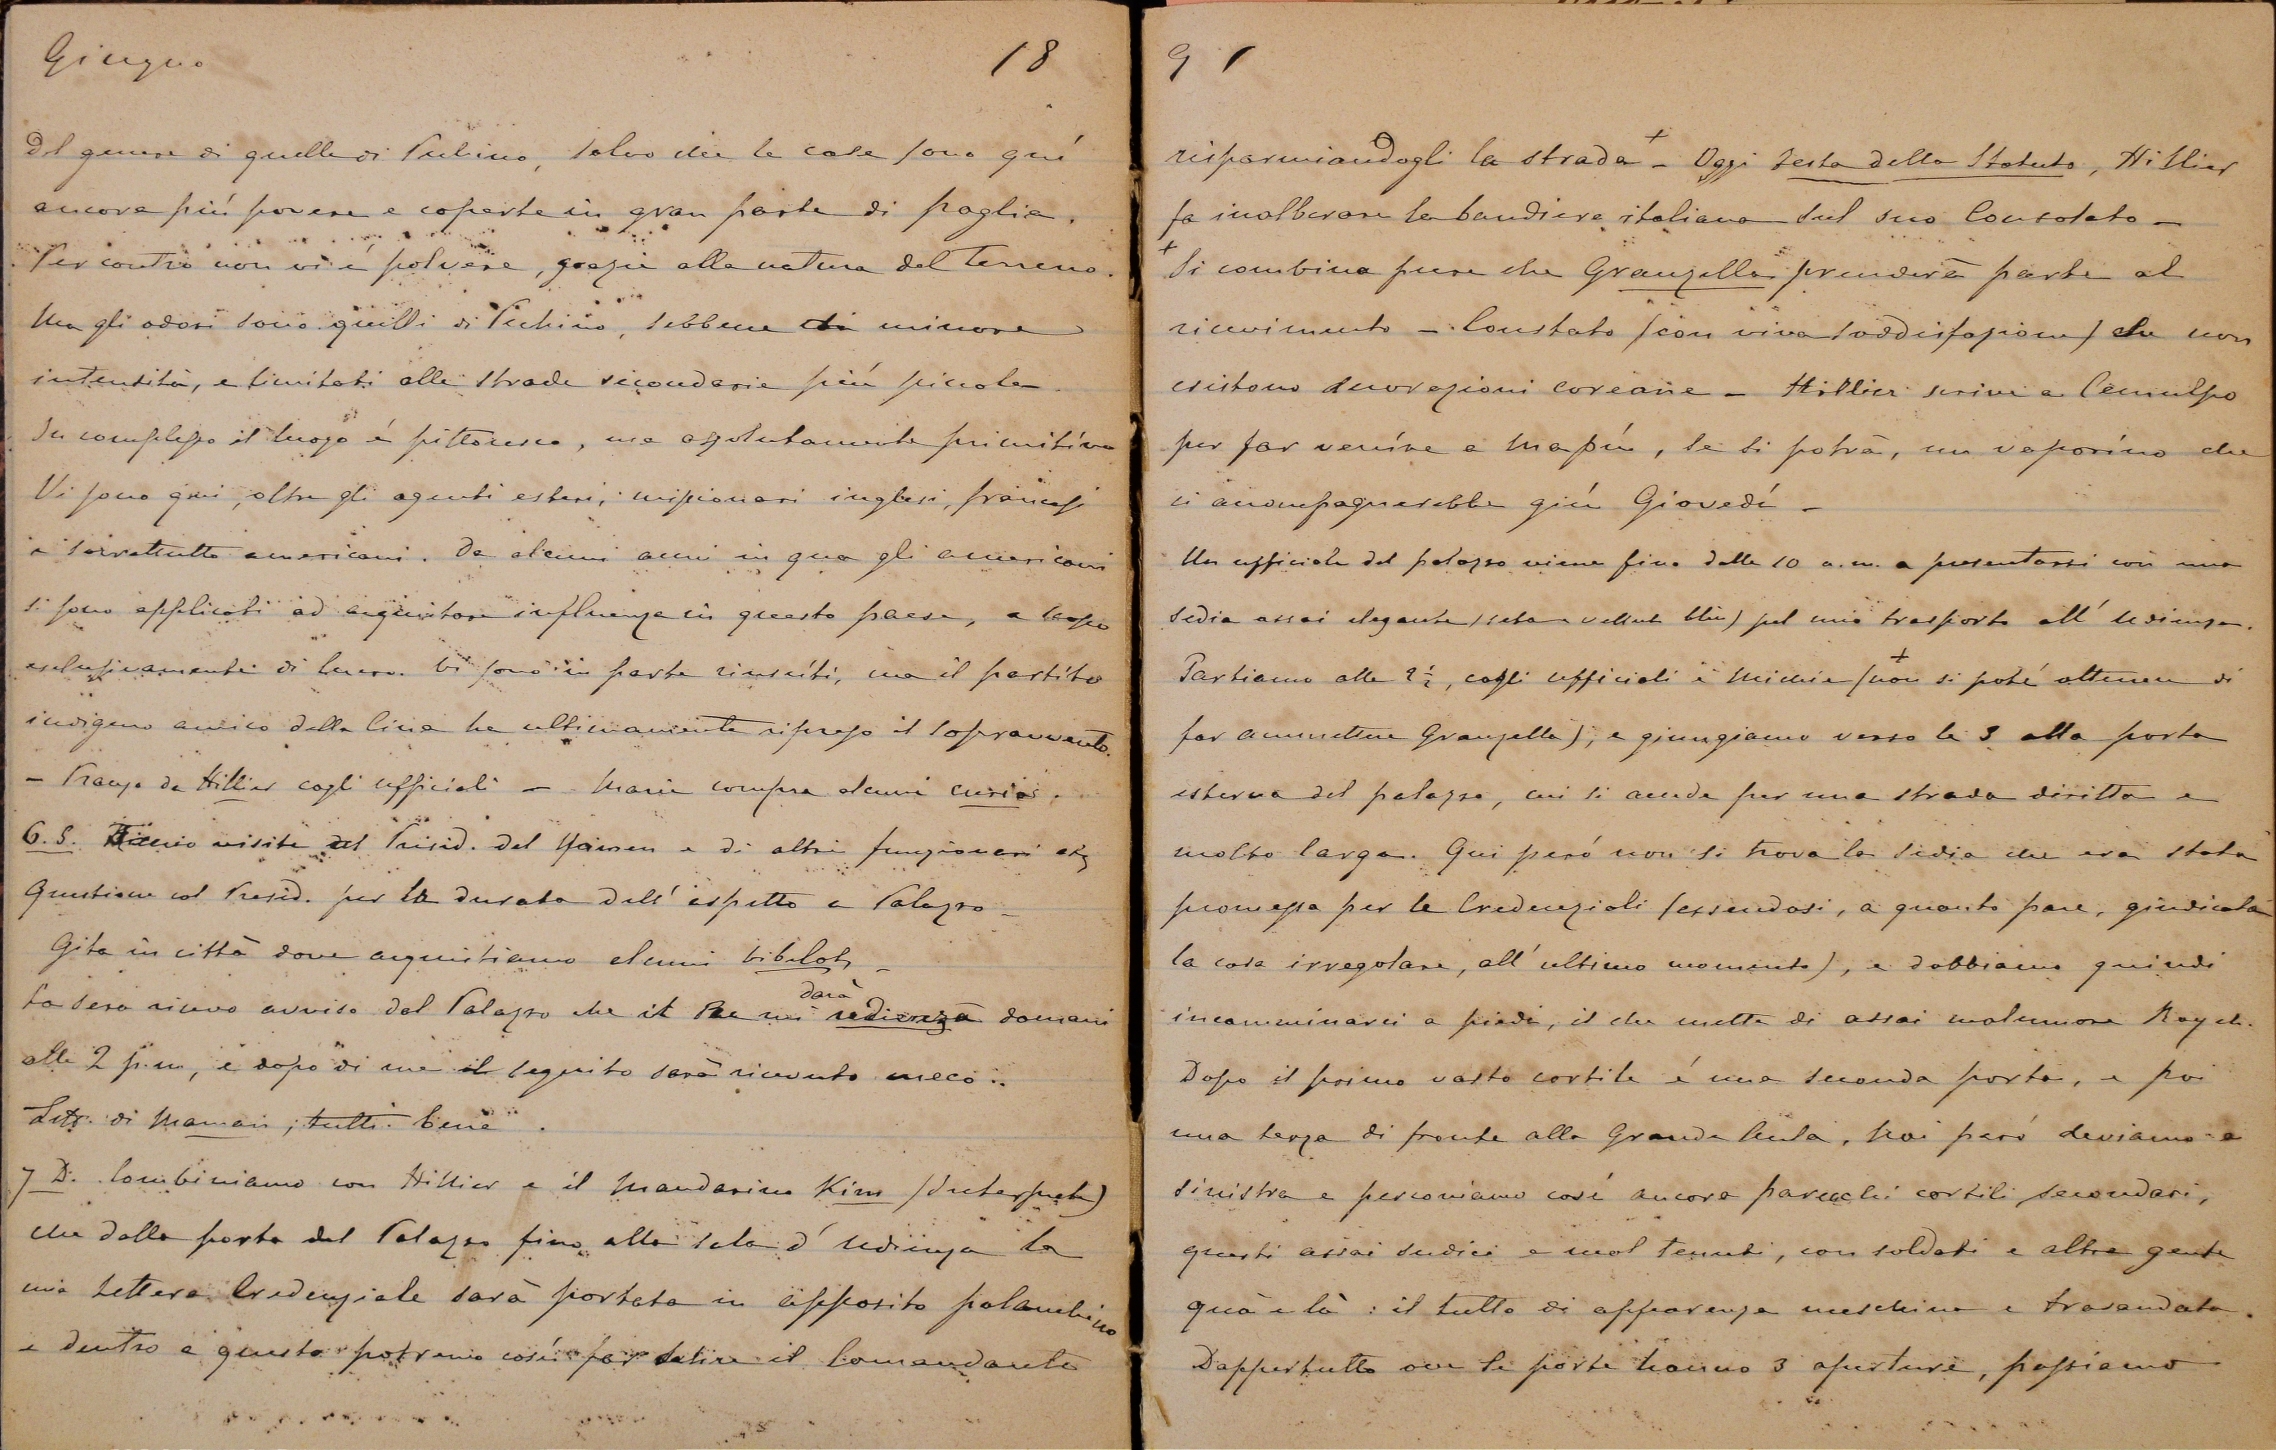 Giugno 18
del genere di quelle di Pechino, salvo che le case sono quí
ancora piú povere e coperte in gran parte di paglia.
Per contro non vi é polvere, grazie alla natura del terreno.
Ma gli odori sono quelli di Pechino, sebbene di minore
intensità, e limitati alle strade secondarie piú piccole
In complesso il luogo é pittoresco, ma assolutamente primitivo
Vi sono qui, oltre gli agenti esteri, missionari inglesi, francesi
e sovratutto americani. Da alcuni anni in qua gli americani
si sono applicati ad acquistare influenza in questo paese, a scopo
esclusivamente di lucro. Vi sono in parte riusciti, ma il partito
indigeno amico della Cina ha ultimamente ripreso il sopravvento.
- Pranzo da Hillier cogli ufficiali - Marie compra alcuni curios.
6. S. visite del Presid. del Yamen e di altri funzionari etc
Questione col Presid. per la durata dell' aspetto a Palazzo -
Gita in cittá dove acquistiamo alcuni bibelots -
darà
La sera ricevo avviso dal Palazzo che il Re mi udienza domani
alle 2 p.m, e dopo di me il seguito sarà ricevuto meco..
Lett. di Maman; tutti bene.
7 D. Combiniamo con Hillier e il Mandarino Kim (Interprete)
che dalla porta del Palazzo fino alla sala d' udienza la
mia lettera Credenziale sarà portata in apposito palanchino
e dentro a questo potremo cosí far salire il Comandante
9 1
risparmiandogli la strada + - Oggi festa dello Statuto, Hillier
fa inalberare la bandiera italiana sul suo Consolato -
+ Si combina pure che Granzella prenderà parte al
ricevimento - Constato (con viva soddisfazione) che non
esistono decorazioni coreane - Hillier scrive a Cemulpo
per far venire a Mapú, se si potrà, un vaporino che
ci accompagnerebbe giú Giovedí -
Un ufficiale del palazzo viene fino dalle 10 a.m. a presentarsi con una
sedia assai elegante (seta e vellut bleu) pel mio trasporto all' udienza.
Partiamo alle 2½, cogli ufficiali e Michie (+non si poté ottenere di
far ammettere Granzella), e giungiamo verso le 3 alla porta
esterna del palazzo, cui si accede per una strada diritta e
molto larga. Qui peró non si trova la sedia che era stata
promessa per le Credenziali (essendosi, a quanto pare, giudicata
la cosa irregolare, all' ultimo momento), e dobbiamo quindi
incamminarci a piedi, il che mette di assai malumore
Dopo il primo vasto cortile é una seconda porta, e poi
una terza di fronte alla Grande Aula, noi peró deviamo a
sinistra e percorriamo cosí ancora parecchi cortili secondari,
questi assai sudici e mal tenuti, con soldati e altra gente
quà e là: il tutto di apparenza meschina e trasandata.
Dappertutto ove le porte hanno 3 aperture, passiamo